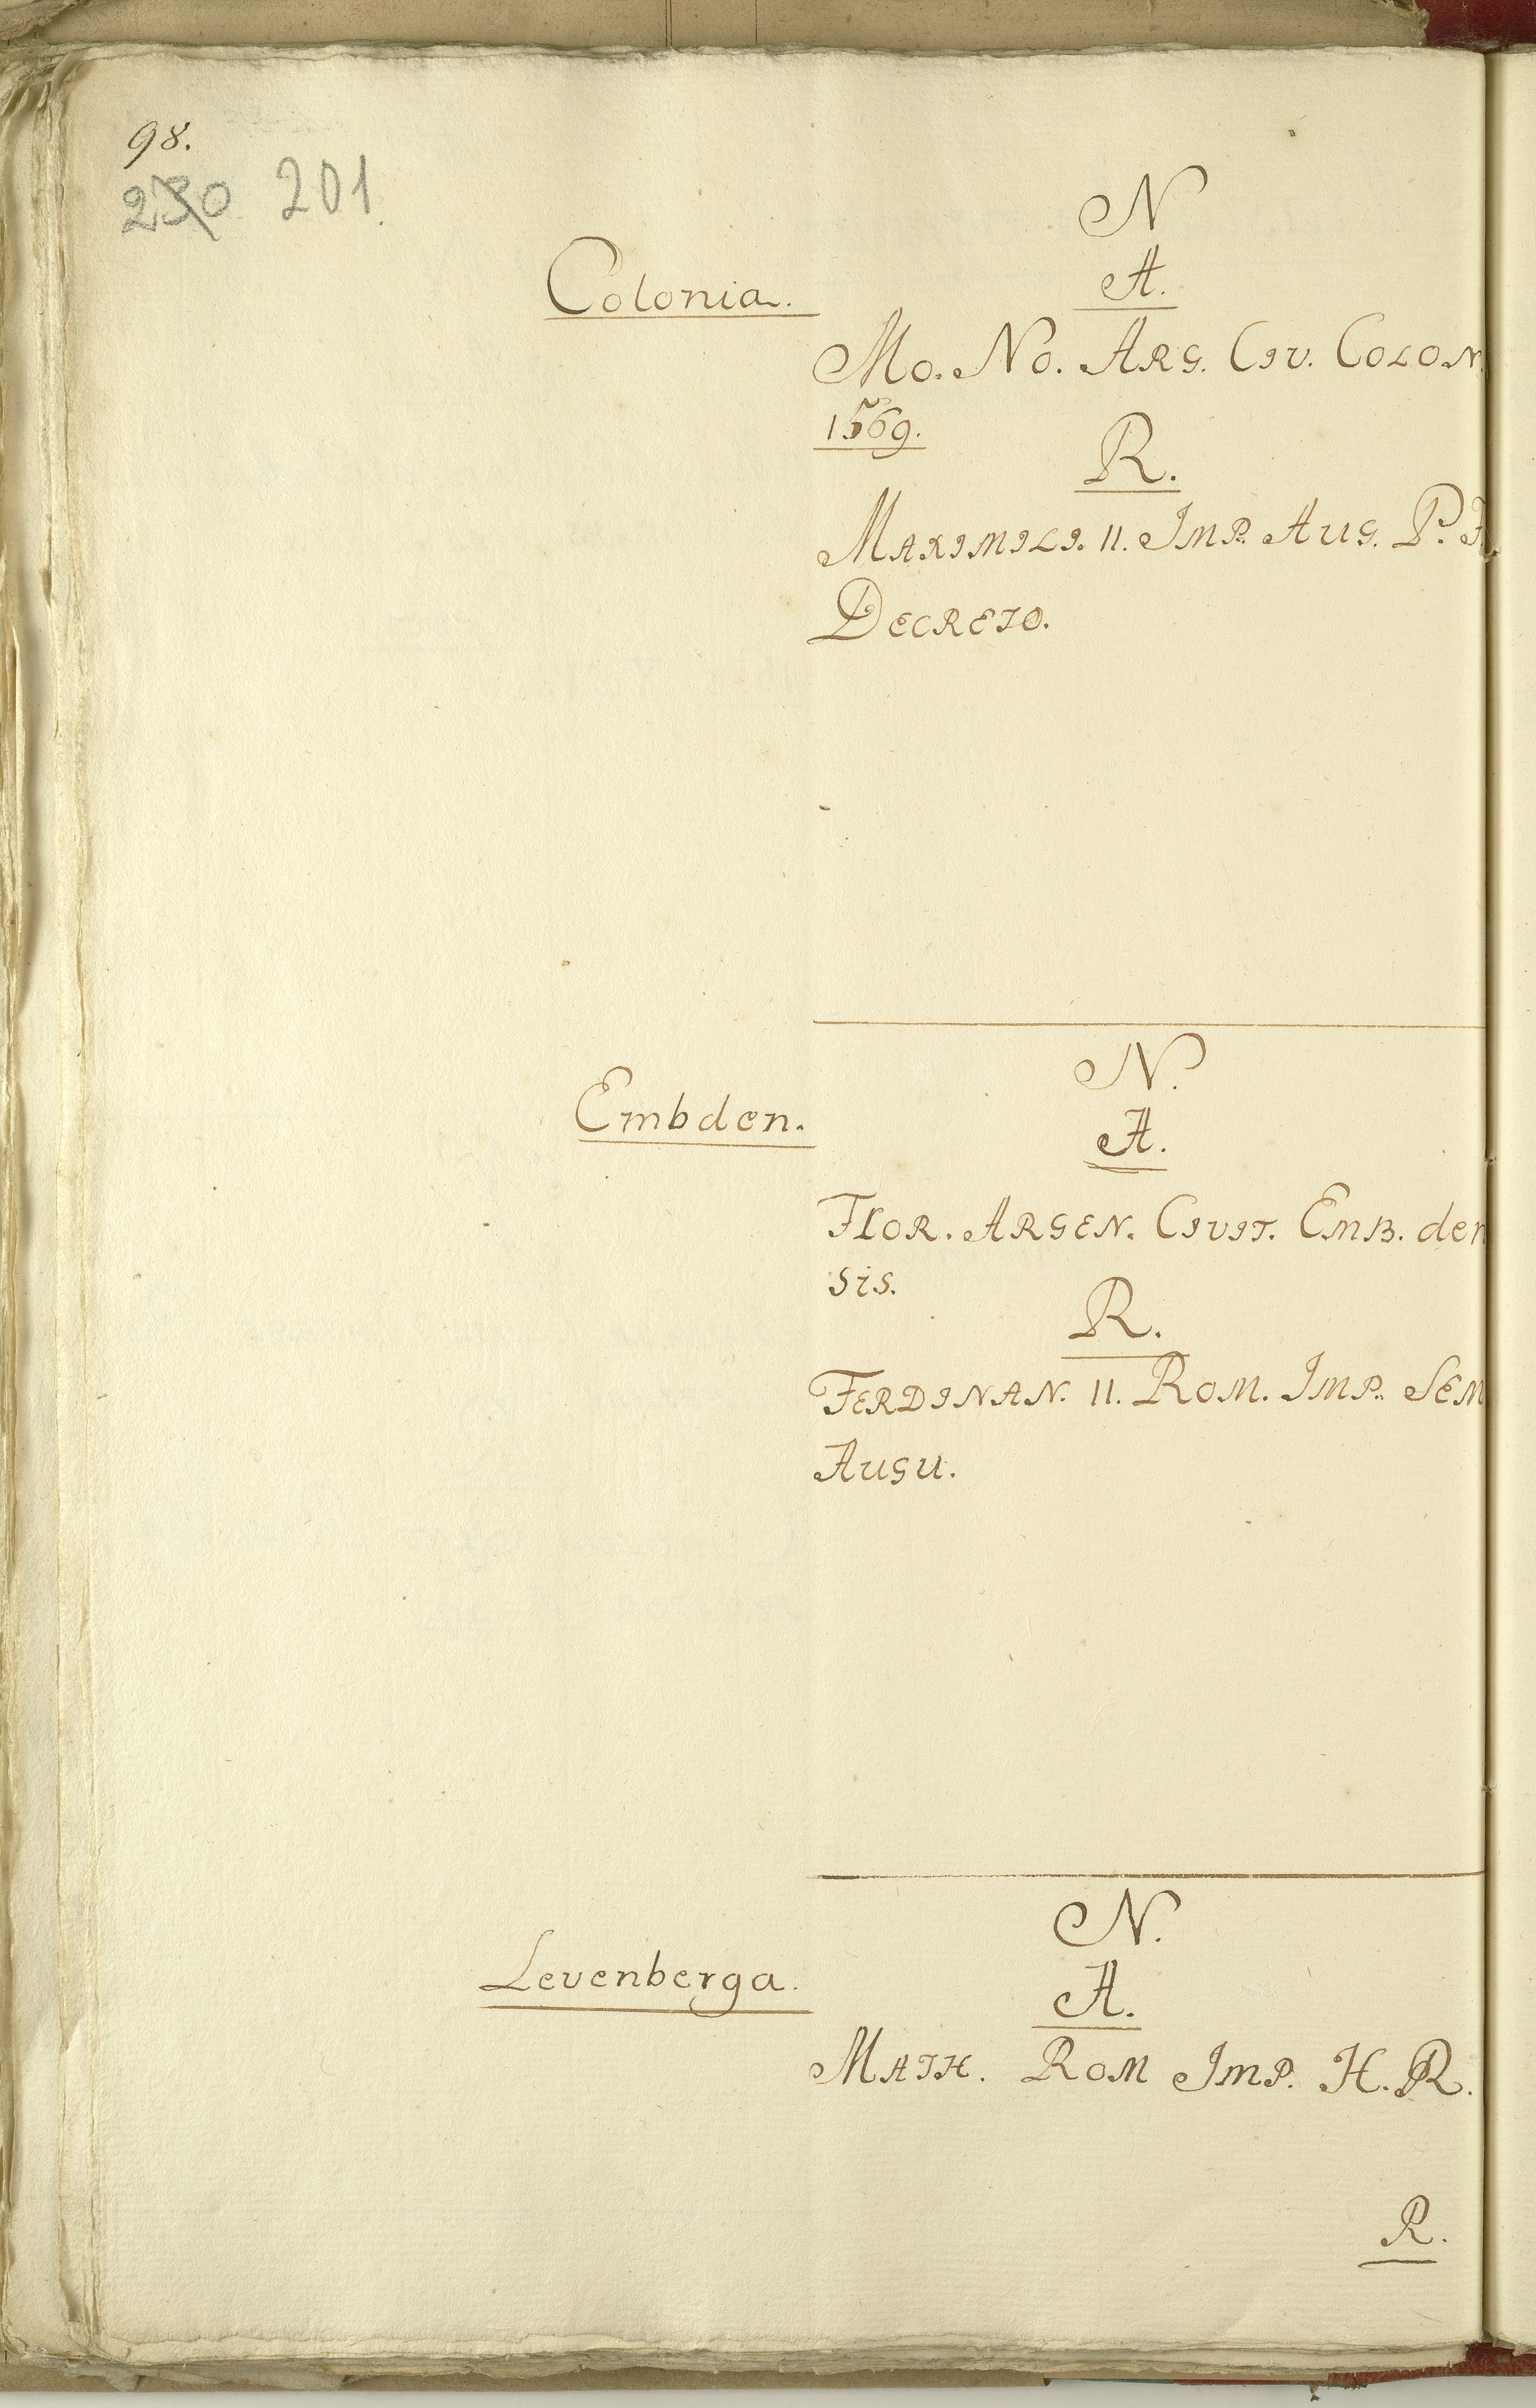 98.
230 201.
N
A.
Colonia.
Mo. No. ARG. CIV. COLON.
1569.
R.
MAXIMILI. II. IMP. AUG. P. F
DECRETO.
N.
A.
Embden.
FLOR. ARGEN. CIVIT. EMB. den
sis.
R.
FERDINAN. II. ROM. IMP. SEM
AUGU.
N.
A.
Levenberga.
MATH. ROM IMP. H. R.
R.